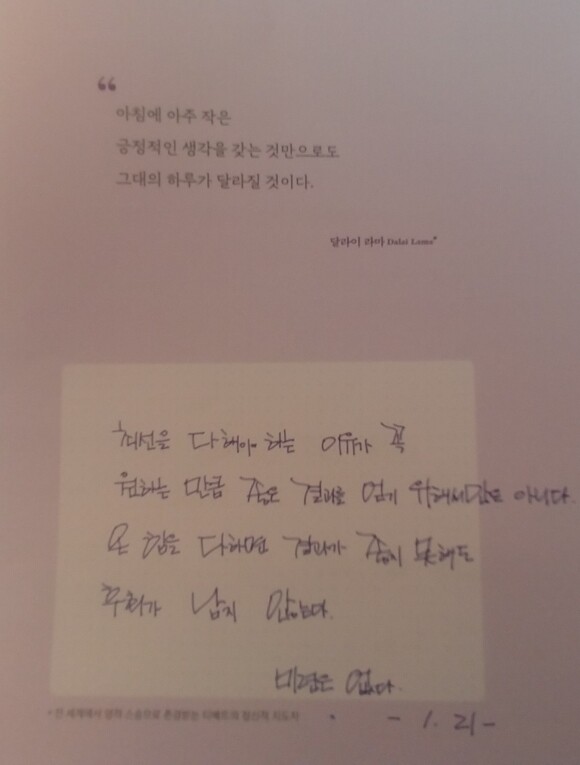 “
아침에 아주 작은
긍정적인 생각을 갖는 것만으로도
그대의 하루가 달라질 것이다.
달라이 라마 Dalai Lama*
최선을 다해야 하는 이유가 꼭
원하는 만큼 좋은 결과를 얻기 위해서만은 아니다.
온 힘을 다하면 결과가 좋지 못해도
후회가 남지 않는다.
미련은 없다.
* 전 세계에서 영적 스승으로 존경받는 티베트의 정신적 지도자
- 1. 21 -